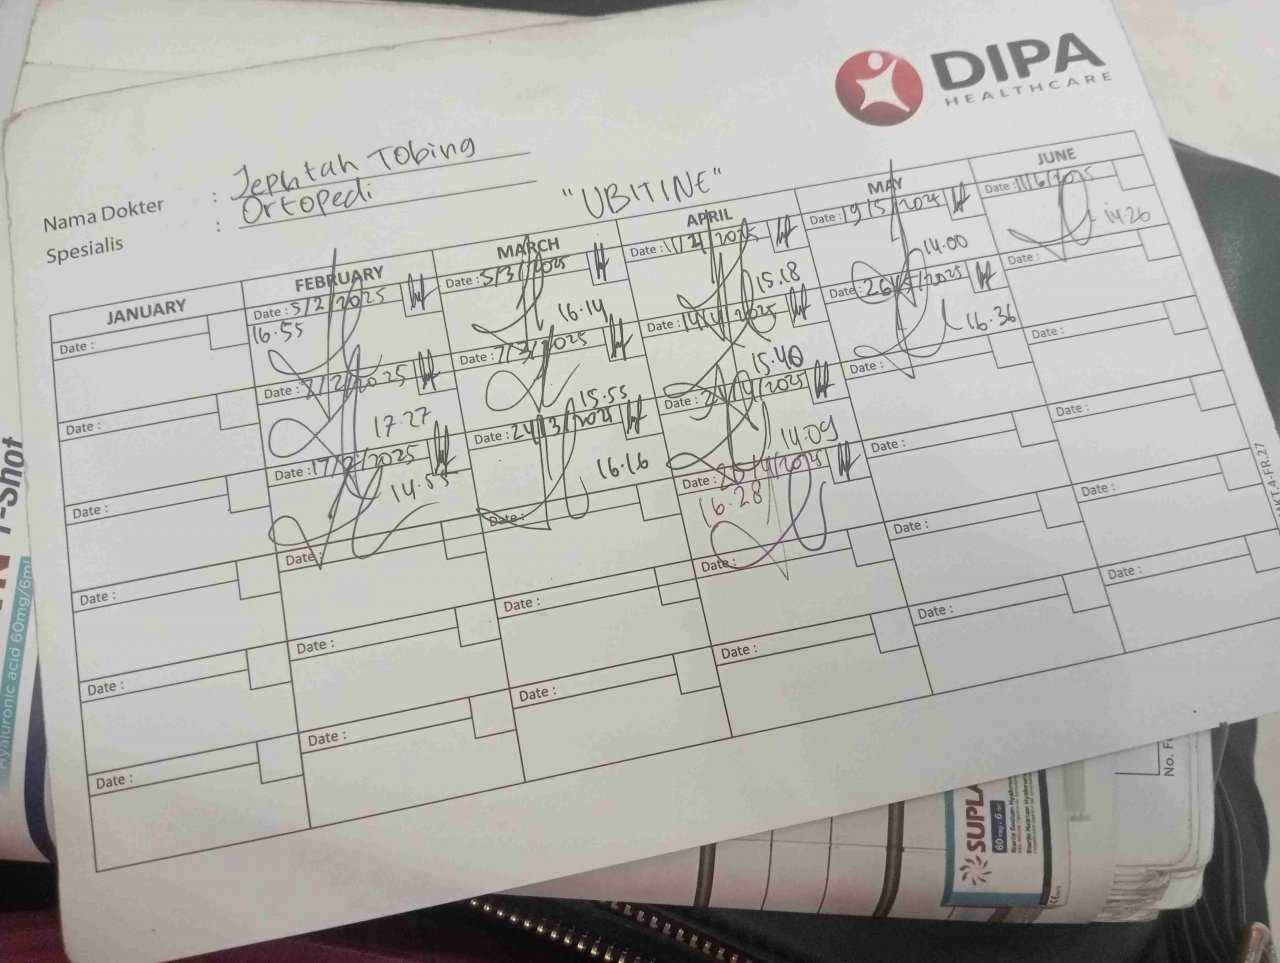 DIPA
HEALTHCARE
Nama Dokter : Jephtah Tobing
Spesialis : Ortopedi
"UBITINE"
JANUARY
Date :
Date :
Date :
Date :
Date :
Date :
FEBRUARY
Date : 5/2/2025
16.55
Date : 7/2/2025
17.27
Date : 17/2/2025
14.55
Date :
Date :
Date :
MARCH
Date : 5/3/2025
16.14
Date : 7/3/2025
15.55
Date : 24/3/2025
16.16
Date :
Date :
Date :
APRIL
Date : 11/4/2025
15.18
Date : 14/4/2025
15.40
Date : /4/2025
14.09
Date : /4/2025
16.28
Date :
Date :
MAY
Date : 19/5/2025
14.00
Date : 26/5/2025
16.36
Date :
Date :
Date :
Date :
JUNE
Date : 11/6/2025
14.26
Date :
Date :
Date :
Date :
Date :
T-Shot
Hyaluronic acid 60mg/6ml
SUPLA
60 mg / 6 ml
No. F